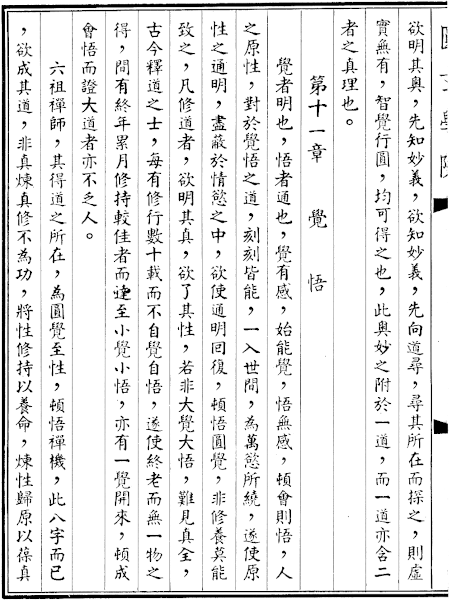 欲明其奧，先知妙義，欲知妙義，先向道尋，尋其所在而探之，則虛
實無有，智覺行圓，均可得之也，此奧妙之附於一道，而一道亦含二
者之真理也。
第十一章　覺　悟
覺者明也，悟者通也，覺有感，始能覺，悟無感，頓會則悟，人
之原性，對於覺悟之道，刻刻皆能，一入世間，為萬慾所繞，遂使原
性之通明，盡蔽於情慾之中，欲使通明回復，頓悟圓覺，非修養莫能
致之，凡修道者，欲明其真，欲了其性，若非大覺大悟，難見真全，
古今釋道之士，每有修行數十載而不自覺自悟，遂使終老而無一物之
得，間有終年累月修持較佳者而達至小覺小悟，亦有一覺開來，頓成
會悟而證大道者亦不乏人。
六祖禪師，其得道之所在，為圓覺至性，頓悟禪機，此八字而已
，欲成其道，非真煉真修不為功，將性修持以養命，煉性歸原以葆真